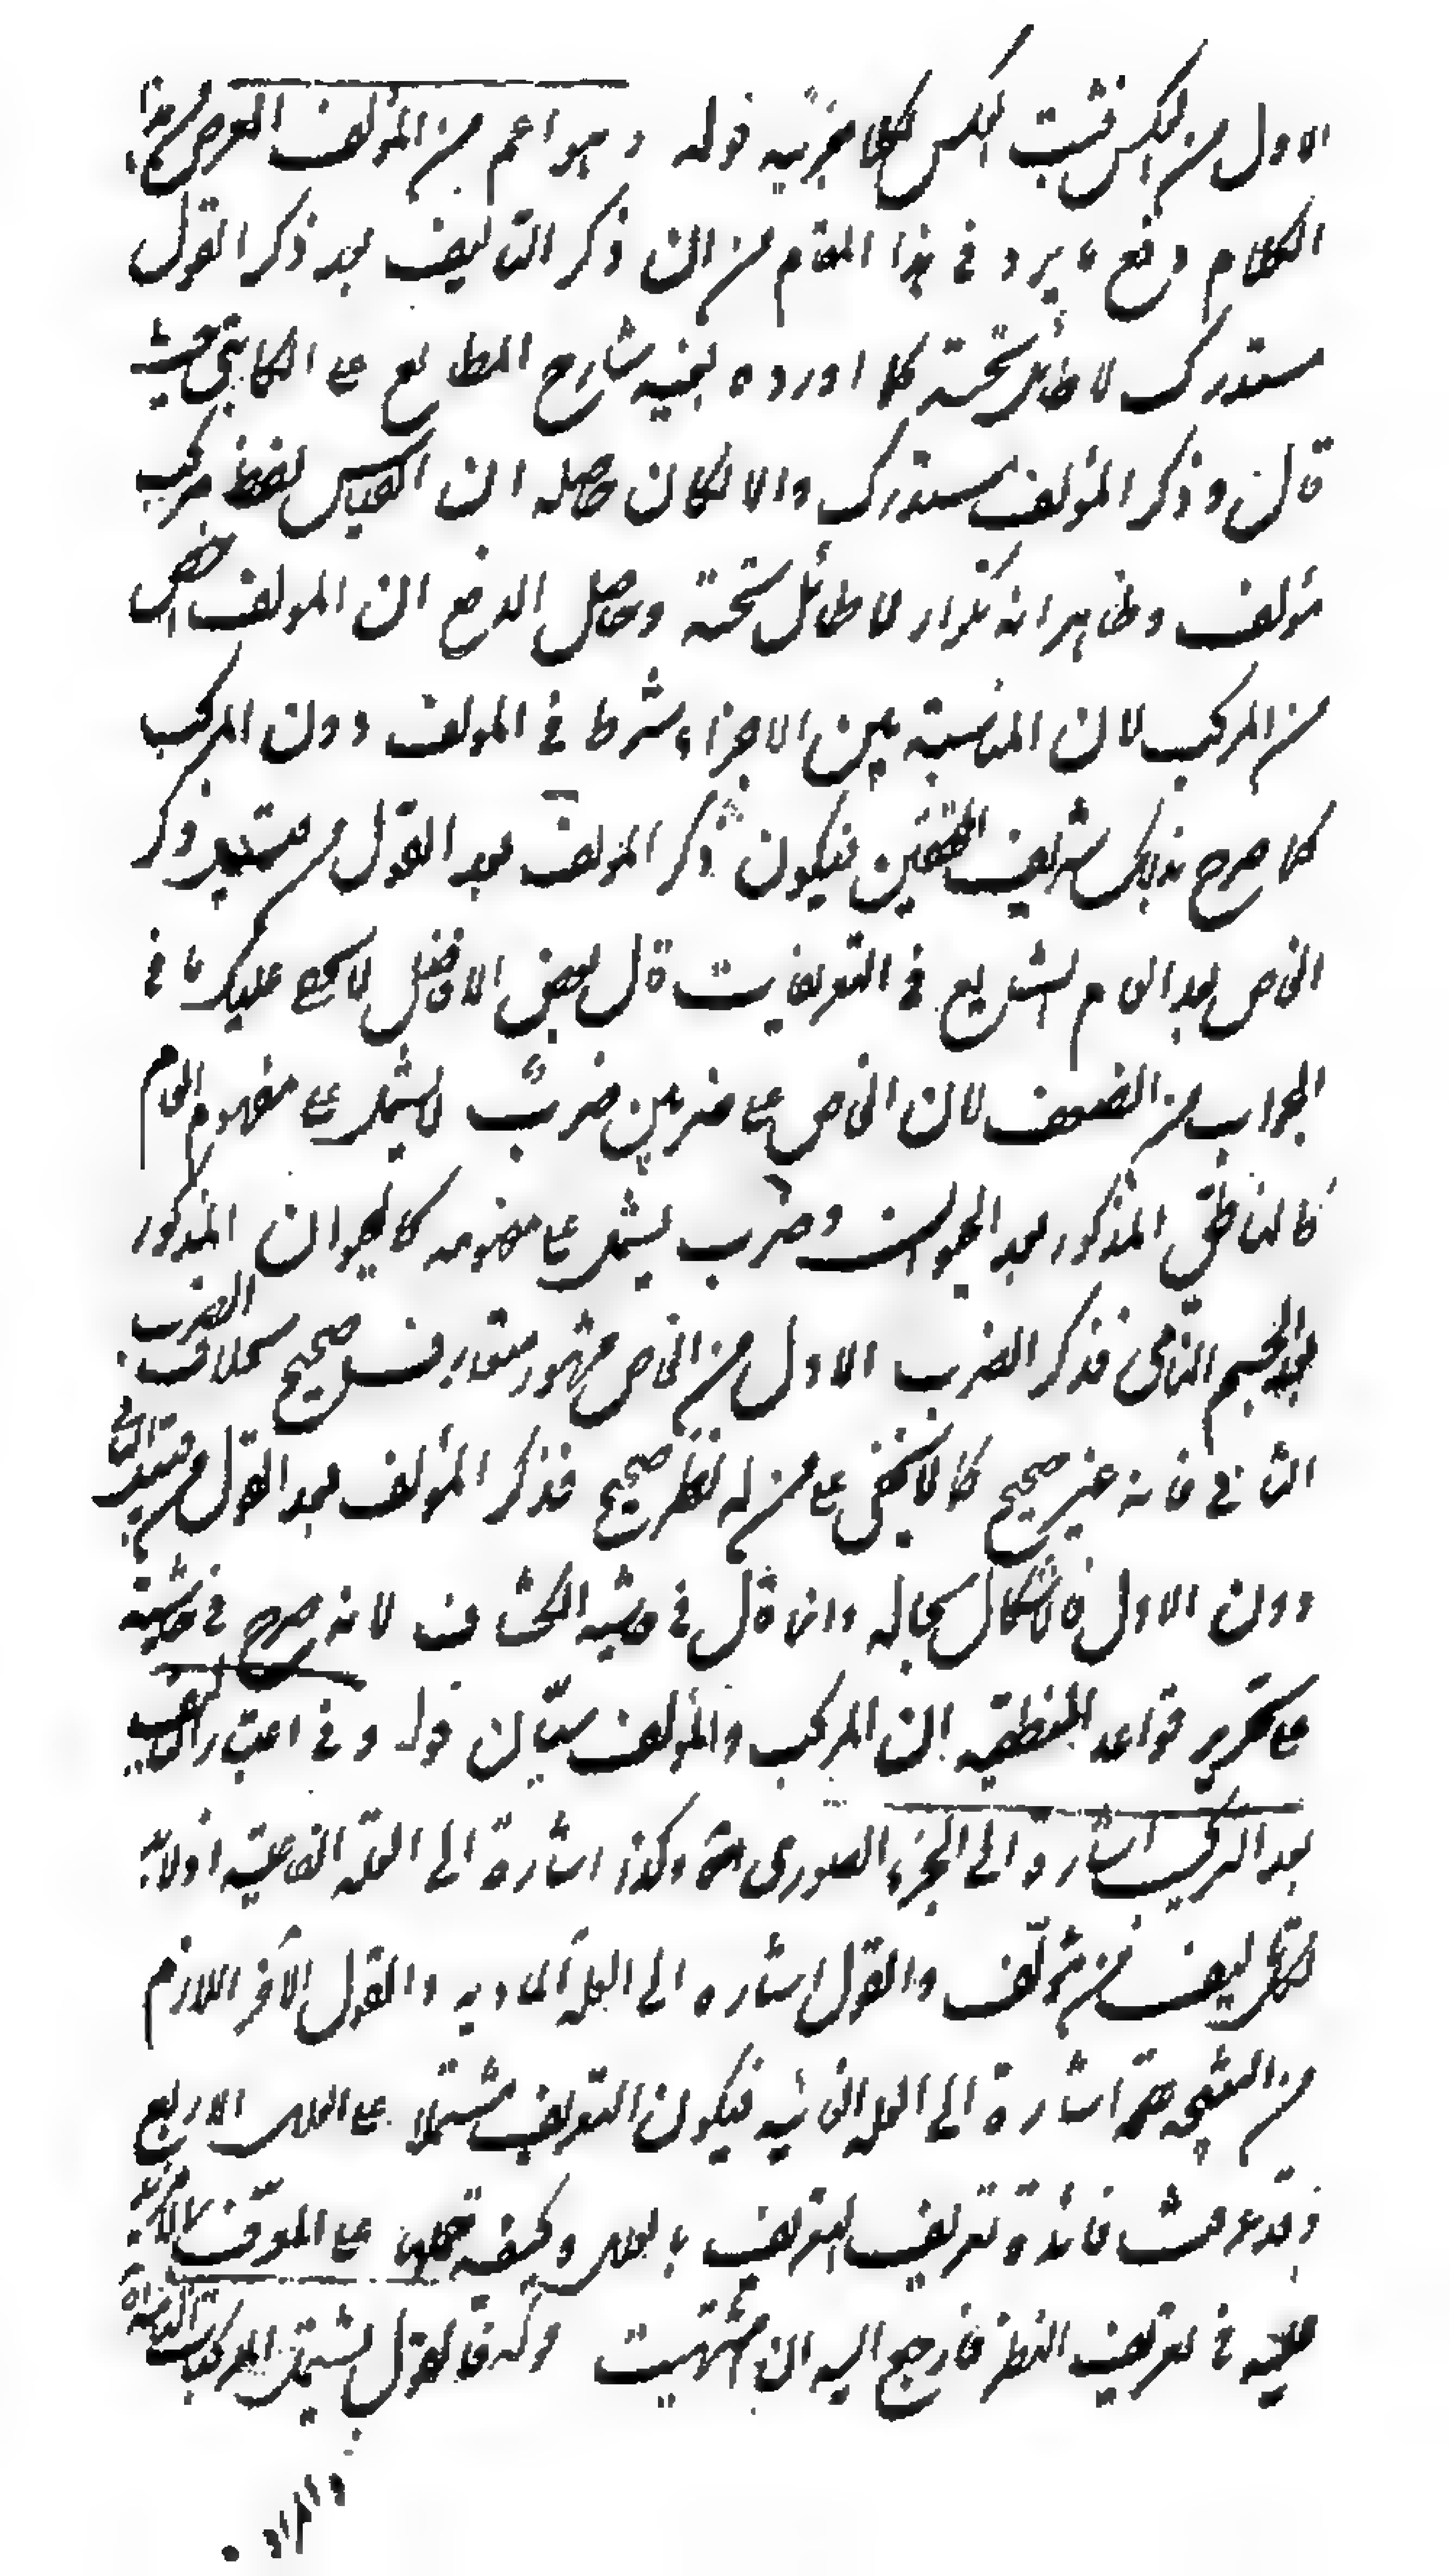 الاول من العكس فثبت العكس كلها جزئيه قوله وهو اعم من المؤلف الغرض من هذا
الكلام دفع ما يرد في هذا المقام من ان ذكر التأليف بعد ذكر القول
مستدرك لا طائل تحته كما اورده بعينه شارح المطالع على الكاتبي حيث
قال وذكر المؤلف مستدرك والا لكان حاصله ان القياس لفظ مركب
مؤلف وظاهر انه تكرار لا طائل تحته وحاصل الدفع ان المولف اخص
من المركب لان المناسبة بين الاجزاء شرط في المولف دون المركب
كما صرح بذلك شريف المحققين فيكون ذكر المولف بعد القول من قبيل ذكر
الخاص بعد العام الشايع في التعريفات قال بعض الافاضل لا يخفى عليك ما في
الجواب من الضعف لان الخاص على ضربين ضرب لا يشتمل على مفهوم العام
كالناطق المذكور بعد الحيوان وضرب يشتمل على مفهومه كالحيوان المذكور
بعد الجسم النامي فذكر الضرب الاول من الخاص مشهور متعارف صحيح بخلاف الضرب
الثاني فانه غير صحيح كما لا يخفى على من له نظر صحيح فذكر المؤلف بعد القول من قبيل الثاني
دون الاول فالاشكال بحاله وان قال في حاشيه الكشاف لانه صرح في حاشية
على تحرير قواعد المنطقيه ان المركب والمؤلف سيّان قوله وفي اعتبار التاليف
بعد التركيب اشارة الى الجزء الصوري وكذا اشارة الى العلة الفاعليه اذ لا بد
لكل تاليف من مؤلف والقول اشاره الى العله الماديه والقول الآخر اللازم
من النتيجه اشارة الى العله الغائيه فيكون التعريف مشتملا على العلل الاربع
وقد عرفت فائدة تعريف التعريف بالعلل وكيفيه على المعرّف
في تعريف النظر فارجع اليه ان اشتهيت قوله فالقول يشمل المركبات التامة
والمراد